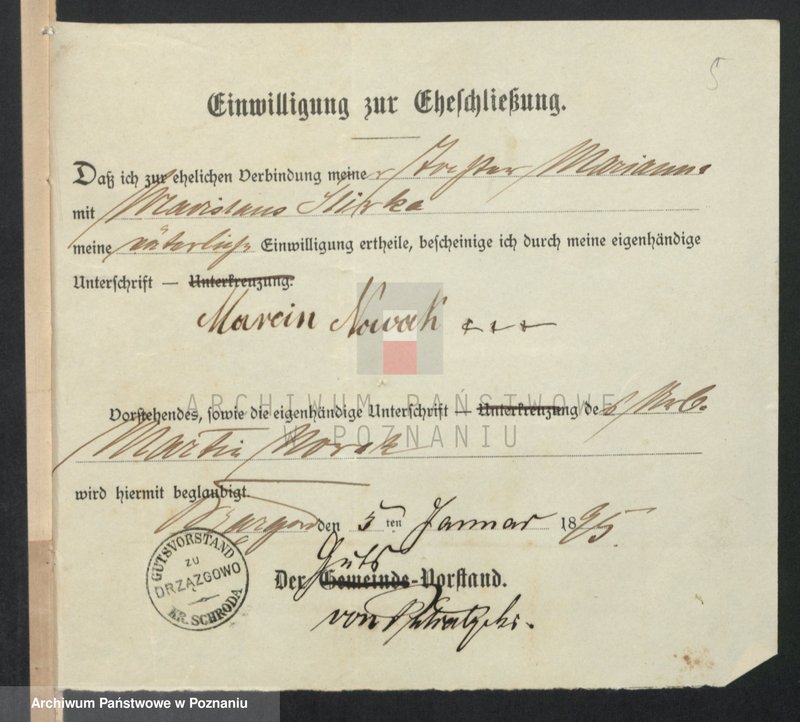 5
Einwilligung zur Eheschließung.
Daß ich zur ehelichen Verbindung meiner Tochter Marianna
mit Wladislaus
meine väterliche Einwilligung ertheile, bescheinige ich durch meine eigenhändige
Unterschrift — Unterkreuzung.
Marcin Nowak + + +
Vorstehendes, sowie die eigenhändige Unterschrift — Unterkreuzung des
Martin Nowak
wird hiermit beglaubigt.
Drzązgowo den 5ten Januar 1895.
Guts
Der Gemeinde-Vorstand.
von
GUTSVORSTAND
ZU
DRZĄZGOWO
KR. SCHRODA
ARCHIWUM PAŃSTWOWE
W POZNANIU
Archiwum Państwowe w Poznaniu